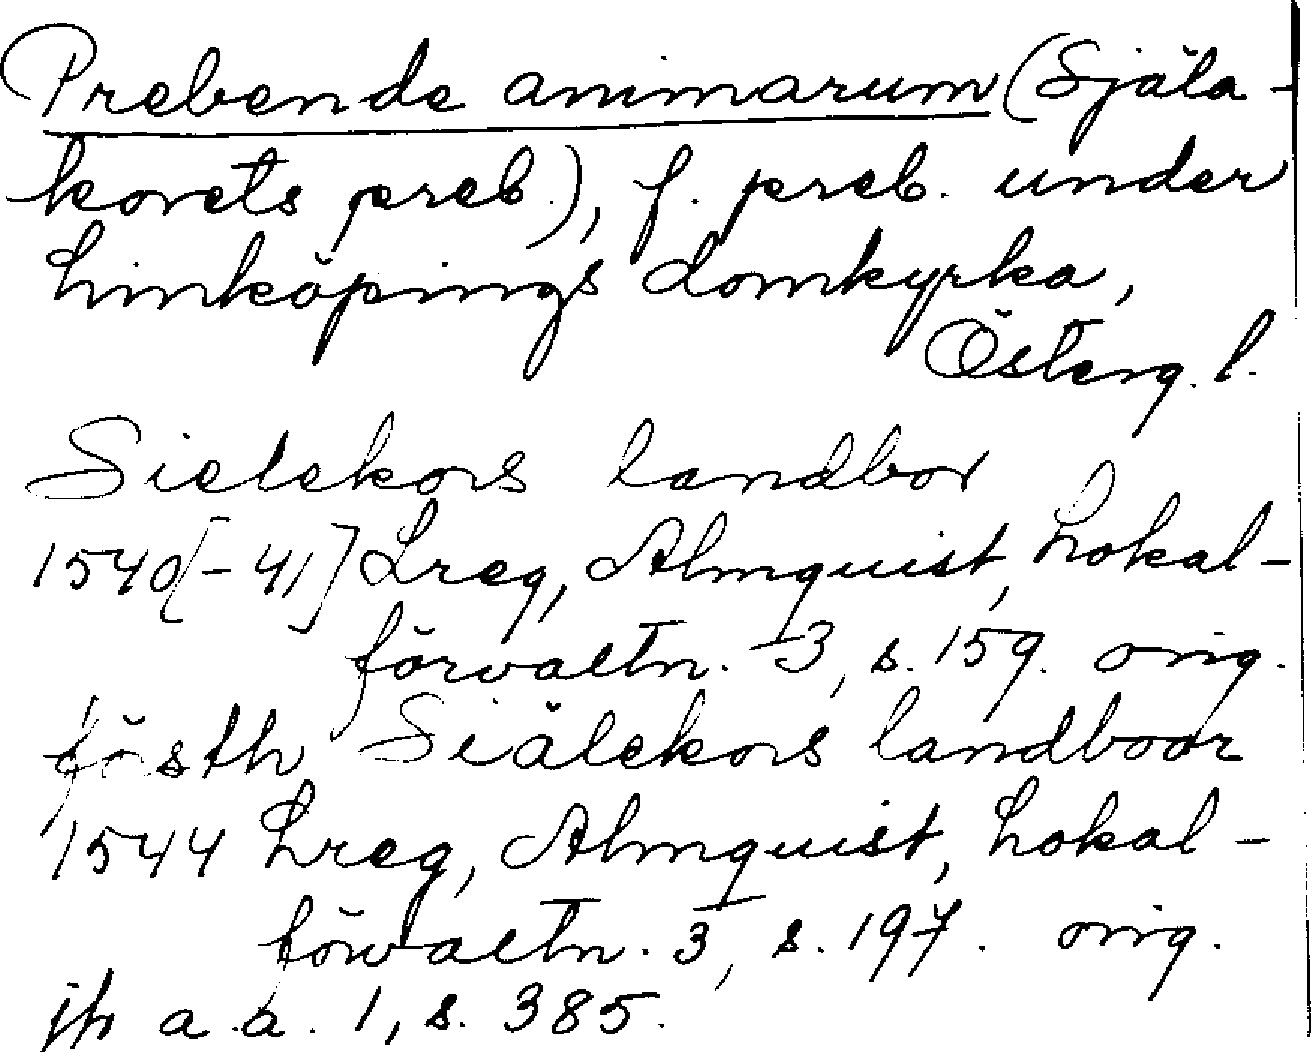 Prebende animarum (Själa-
korets preb.), f. preb. under
Linköpings domkyrka,
Österg. l.
Sielekors landbor
1540[-41] Lreg, Almquist, Lokal-
förvaltn. 3, s. 159. orig.
fösth Siälekors landboor
1544 Lreg, Almquist, Lokal-
förvaltn. 3, s. 197. orig.
jfr a.a. 1, s. 385.